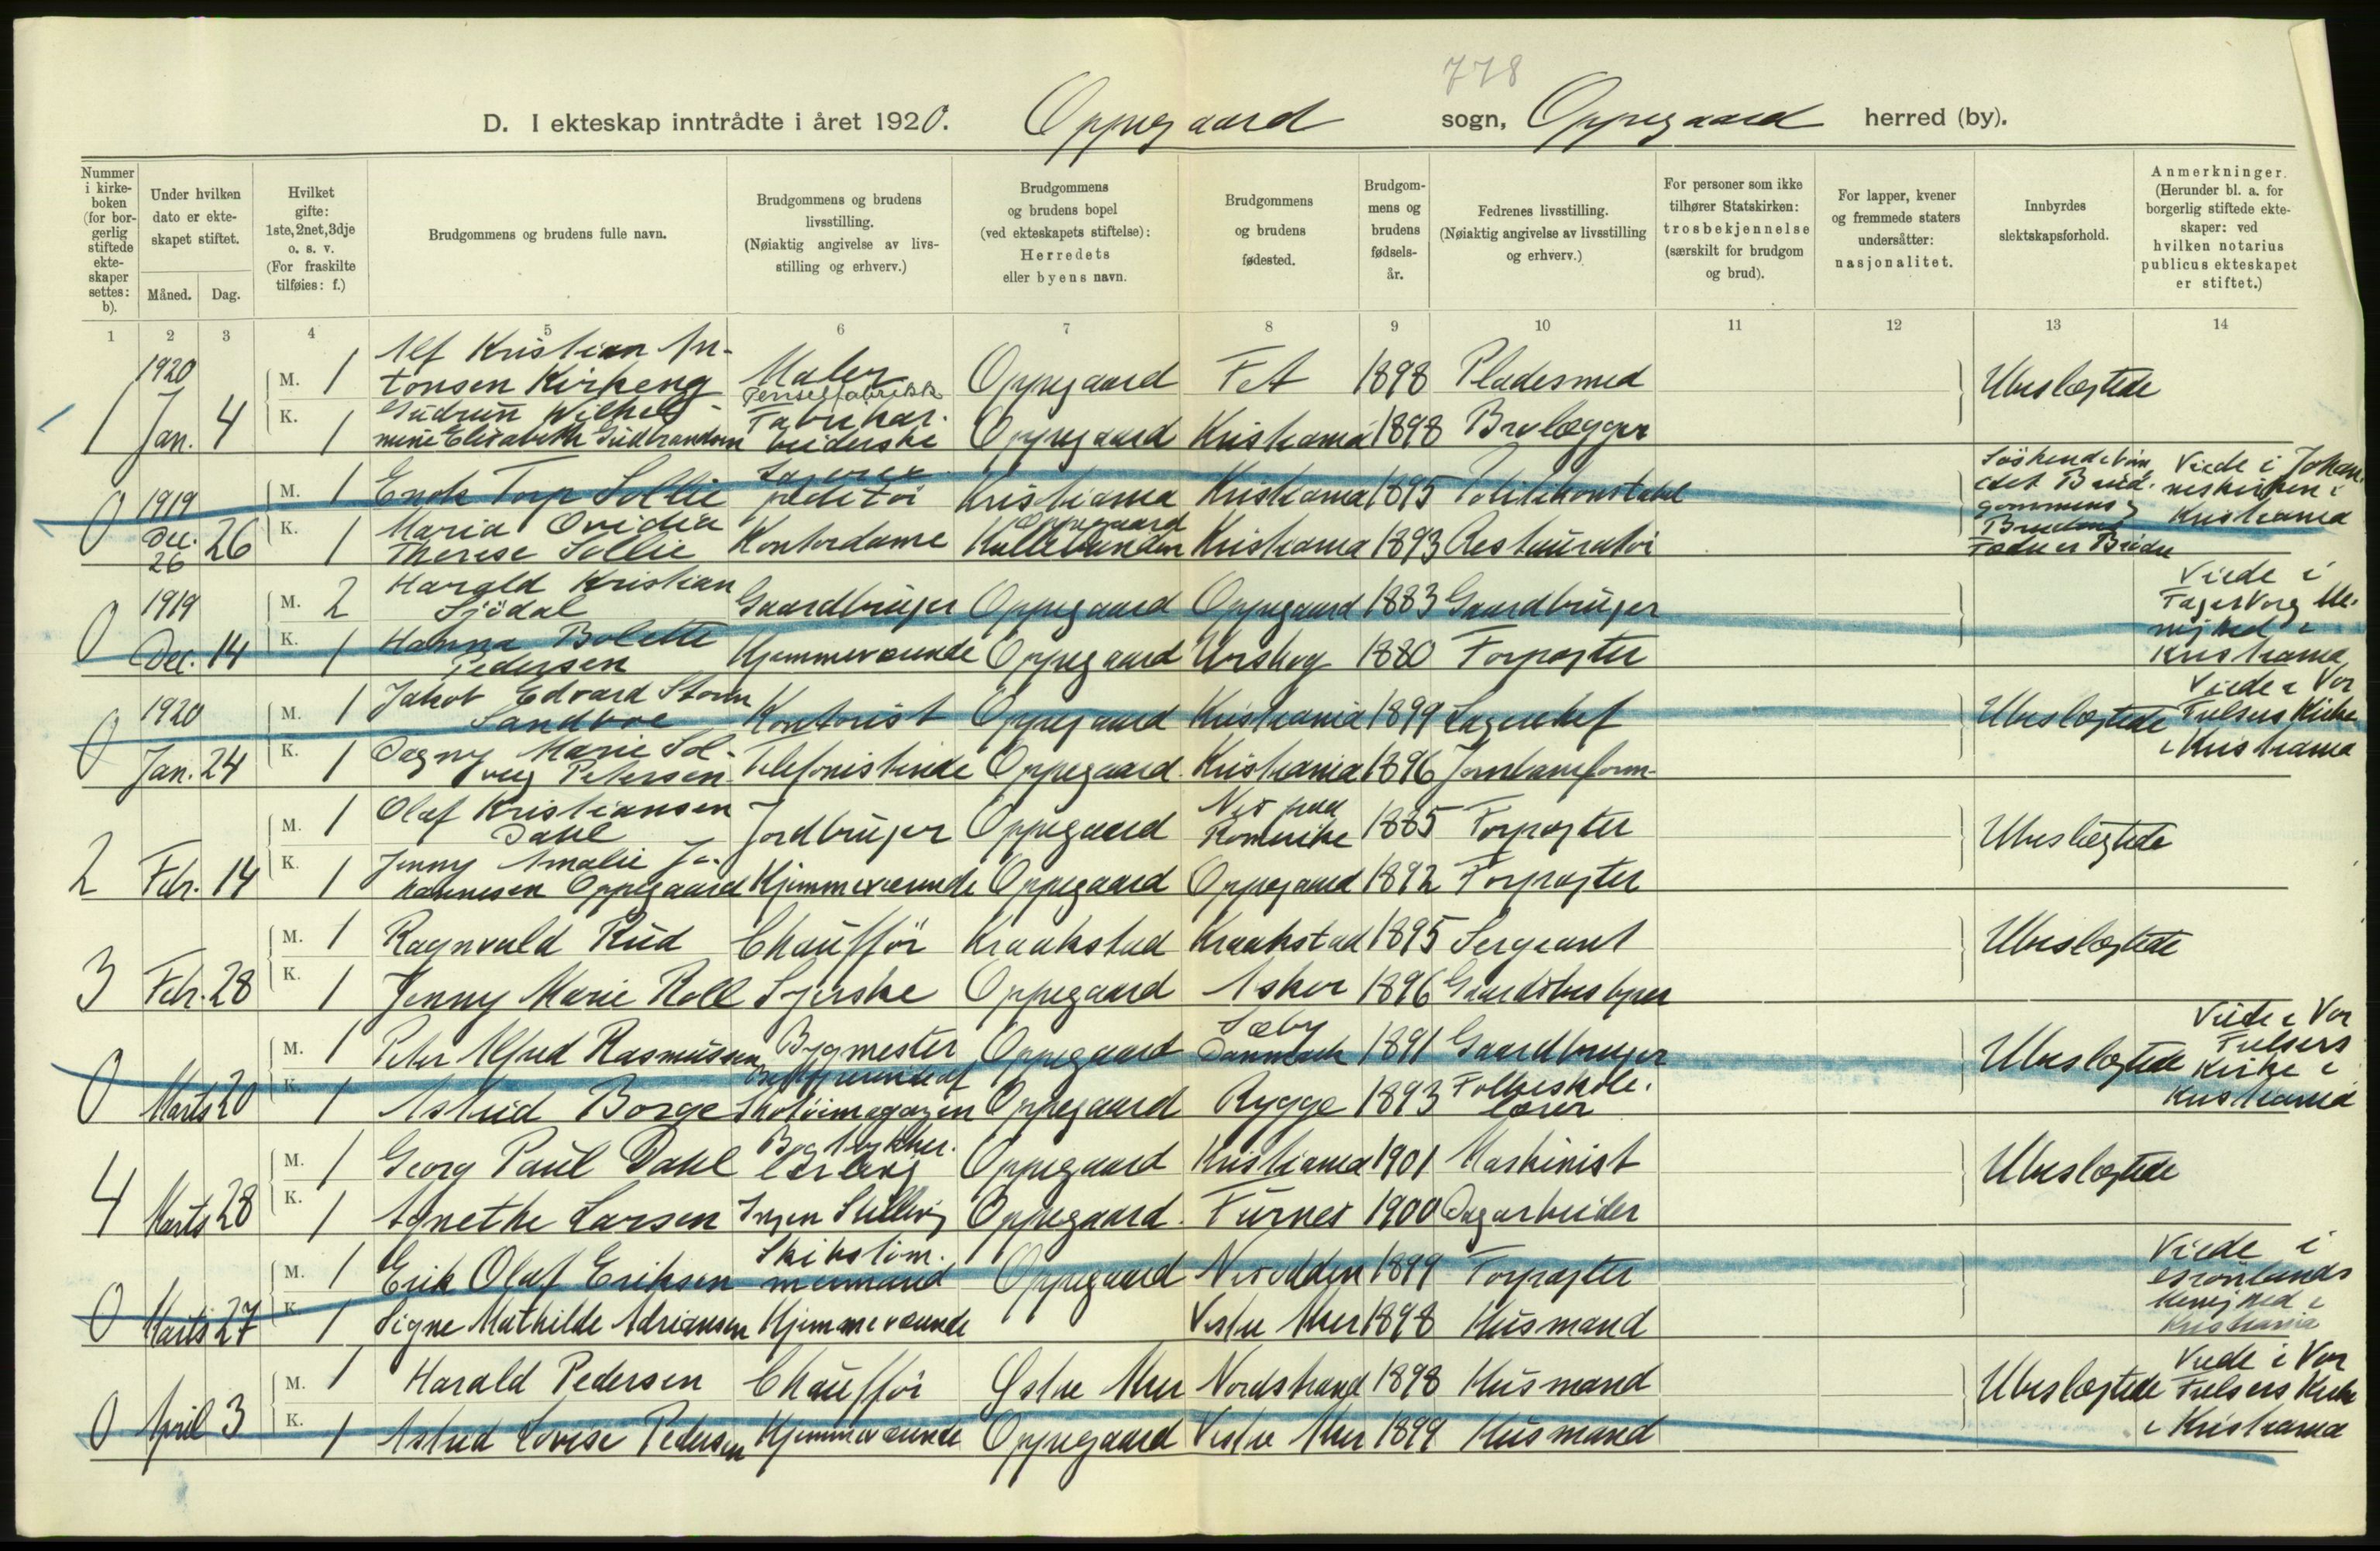 778
D. I ekteskap inntrådte i året 1920. Oppegaard sogn, Oppegaard herred (by).
Nummer i kirkeboken (for borgerlig stiftede ekteskaper settes: b).
Under hvilken dato er ekteskapet stiftet.
Måned. Dag.
Hvilket gifte: 1ste, 2net, 3dje o. s. v. (For fraskilte tilføies: f.)
Brudgommens og brudens fulle navn.
Brudgommens og brudens livsstilling. (Nøiaktig angivelse av livsstilling og erhverv.)
Brudgommens og brudens bopel (ved ekteskapets stiftelse): Herredets eller byens navn.
Brudgommens og brudens fødested.
Brudgommens og brudens fødselsår.
Fedrenes livsstilling. (Nøiaktig angivelse av livsstilling og erhverv.)
For personer som ikke tilhører Statskirken: trosbekjennelse (særskilt for brudgom og brud).
For lapper, kvener og fremmede staters undersåtter: nasjonalitet.
Innbyrdes slektskapsforhold.
Anmerkninger. (Herunder bl. a. for borgerlig stiftede ekteskaper: ved hvilken notarius publicus ekteskapet er stiftet.)
1 2 3 4 5 6 7 8 9 10 11 12 13 14
1 1920 Jan. 4
M. 1 Alf Kristian Antonsen Kirkeng Maler Oppegaard Fet 1898 Pladesmed Ubeslægtede
K. 1 Gudrun Wilhelmine Elisabeth Gudbrandsen Penselfabrikk Fabrikarbeiderske Oppegaard Kristiania 1898 Brolægger
0 1919 Dec. 26 26
M. 1 Enok Torp Sollie Kristiania Kristiania 1895 Politikonstabel Viede i Johanneskirken i Kristiania
K. 1 Maria Ovidia Therese Sollie Kontordame Oppegaard Kullebunden Kristiania 1893 Restauratør
0 1919 Dec. 14
M. 2 Harald Kristian Sjødal Gaardbruger Oppegaard Oppegaard 1883 Gaardbruger Viede i Fagerborg Menighed i Kristiania
K. 1 Hanna Bolette Pedersen Hjemmeværende Oppegaard Urskog 1880 Forpagter
0 1920 Jan. 24
M. 1 Jakob Edvard Storm Sandboe Kontorist Oppegaard Kristiania 1899 Lagerchef Ubeslægtede Viede i Vor Frelsers Kirke i Kristiania
K. 1 Dagny Marie Solveig Petersen Telefonistinde Oppegaard Kristiania 1896 Jernbaneform.
2 Febr. 14
M. 1 Olaf Kristiansen Dahl Jordbruger Oppegaard Nes paa Romerike 1885 Forpagter Ubeslægtede
K. 1 Jenny Amalie Johannesen Oppegaard Hjemmeværende Oppegaard Oppegaard 1892 Forpagter
3 Febr. 28
M. 1 Ragnvald Rud Chauffør Kraakstad Kraakstad 1895 Sergeant Ubeslægtede
K. 1 Jenny Marie Roll Syerske Oppegaard Asker 1896 Gaardsbestyrer
0 Marts 20
M. 1 Peter Alfred Rasmussen Bygmester Oppegaard Sæby Danmark 1891 Gaardbruger Ubeslægtede Viede i Vor Frelsers Kirke i Kristiania
K. 1 Astrid Borge Bestyrerinde af Skotøimagazin Oppegaard Rygge 1893 Folkeskolelærer
4 Marts 28
M. 1 Georg Paul Dahl Bogtrykker Oppegaard Kristiania 1901 Maskinist Ubeslægtede
K. 1 Agnethe Larsen Ingen Stilling Oppegaard Furnes 1900 Dagarbeider
0 Marts 27
M. 1 Erik Olaf Eriksen Skibstømmermand Oppegaard Nesodden 1899 Forpagter Viede i Grønlands Menighed i Kristiania
K. 1 Signe Mathilde Adriansen Hjemmeværende Vestre Aker 1898 Husmand
0 April 3
M. 1 Harald Pedersen Chauffør Østre Aker Nordstrand 1898 Husmand Ubeslægtede Viede i Vor Frelsers Kirke i Kristiania
K. 1 Astrid Lovise Pedersen Hjemmeværende Oppegaard Vestre Aker 1899 Husmand